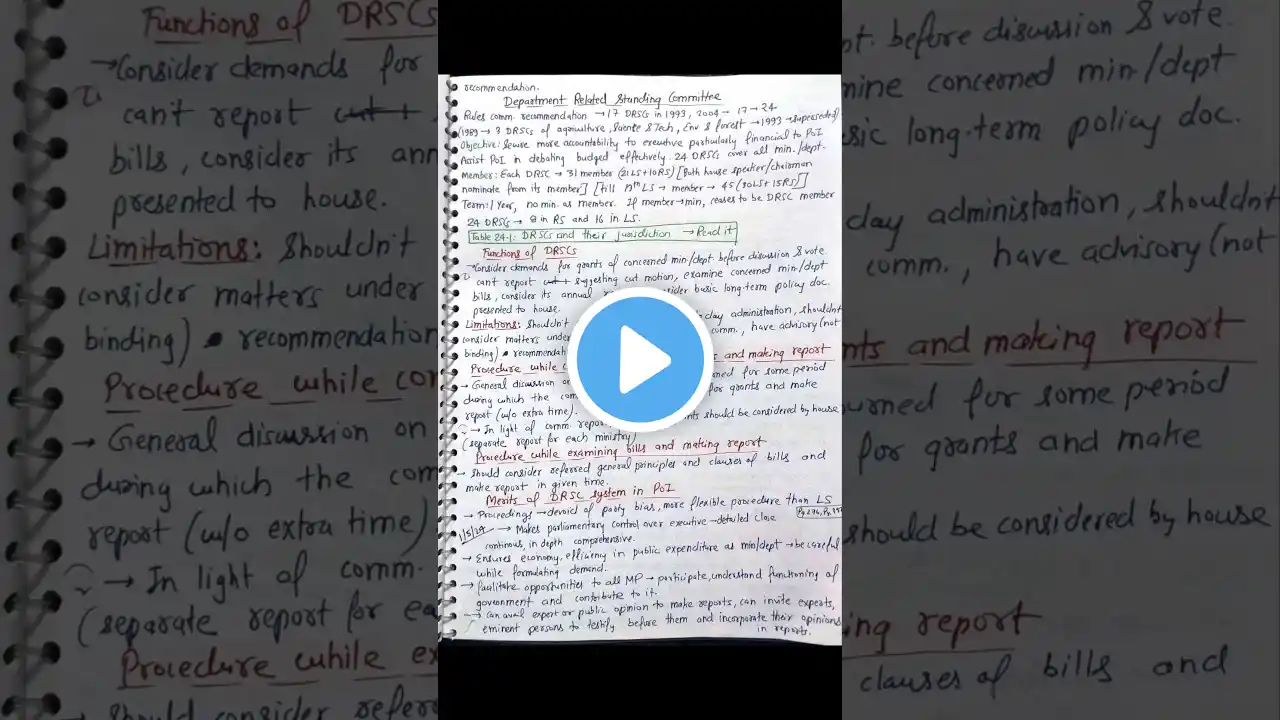 recommendation.
Department Related Standing Committee
Rules comm. recommendation → 17 DRSCs in 1993, 2004 → 17 → 24
(1989 → 3 DRSCs of agriculture, Science & Tech, Env & forest → 1993 → superseded)
Objective: Secure more accountability to executive particularly financial to PoI
Assist PoI in debating budged effectively. 24 DRSCs cover all min./dept.
Member: Each DRSC → 31 member (21LS+10RS) [Both house speaker/chairman
nominate from its member] [till 13th LS → member → 45 (30LS+15RS)]
Term: 1 Year, no min. as member. If member → min, ceases to be DRSC member
24 DRSCs → 8 in RS and 16 in LS.
Table 24.1: DRSCs and their jurisdiction → Read it
Functions of DRSCs
→ Consider demands for grants of concerned min/dept before discussion & vote.
can't report cut + suggesting cut motion, examine concerned min/dept
bills, consider its annual consider basic long-term policy doc.
presented to house.
Limitations: Shouldn't day administration, shouldn't
consider matters under comm., have advisory (not
binding) • recommendation
Procedure while and making report
→ General discussion on for some period
during which the com for grants and make
report (w/o extra time).
→ In light of comm. report should be considered by house
(separate report for each ministry)
Procedure while examining bills and making report
→ Should consider referred general principles and clauses of bills and
make report in given time.
Merits of DRSC system in PoI
→ Proceedings → devoid of party bias, more flexible procedure than LS
→ Makes parliamentary control over executive → detailed close
continous, in depth comprehensive.
→ Ensures economy, efficieny in public expenditure as min/dept → be careful
while formulating demand.
→ facilitate opportunities to all MP → participate, understand functioning of
government and contribute to it.
→ can avail expert or public opinion to make reports, can invite experts,
eminent persons to testify before them and incorporate their opinions
in reports.